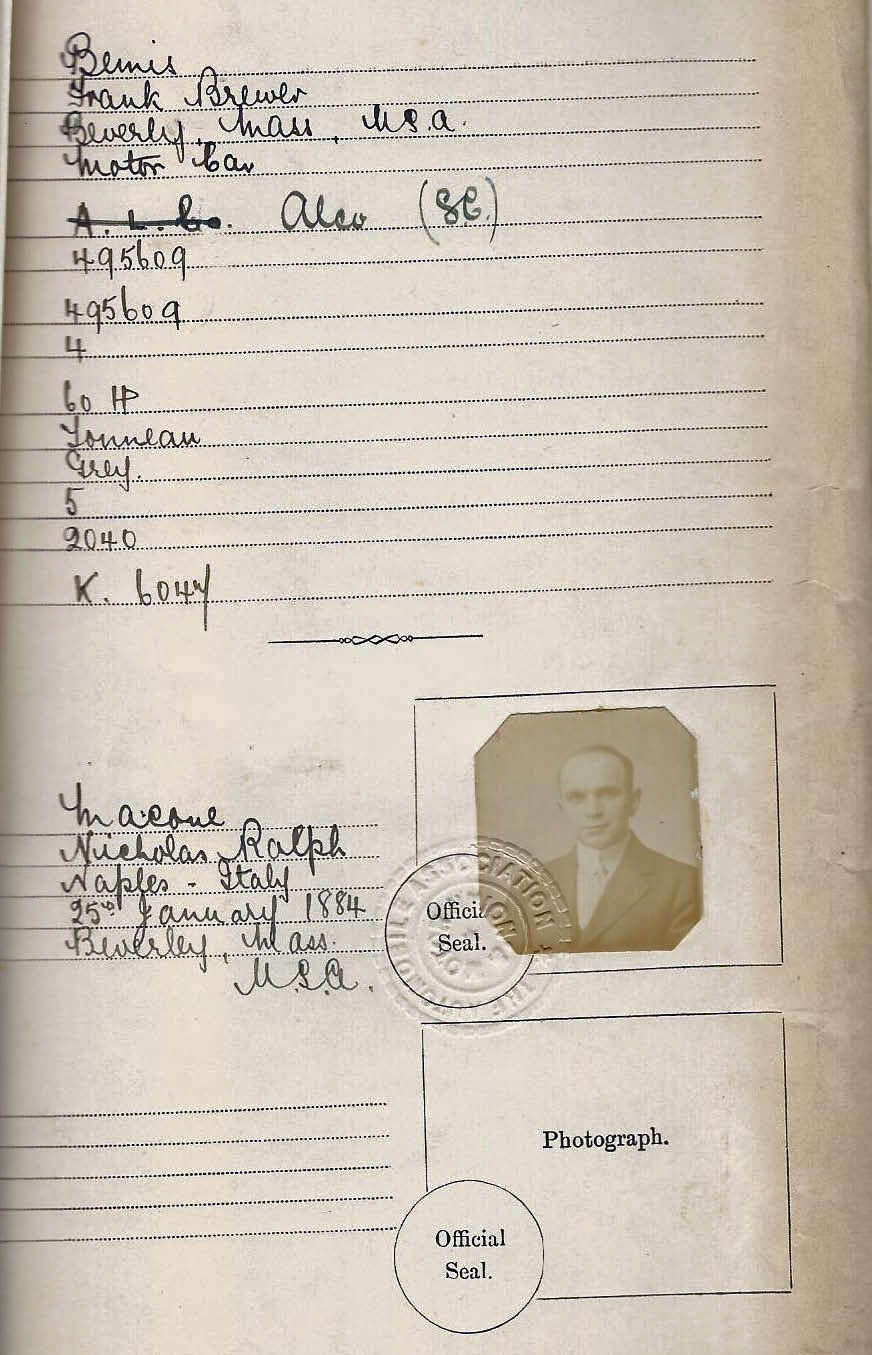 Bemis
Frank Brewer
Beverly, Mass, U.S.A.
Motor Car
A. L. Co. Alco
495609
495609
4
60 HP
Tonneau
Grey.
5
2040
K. 6047
Macone
Nicholas Ralph
Naples - Italy
25th January 1884
Beverley, Mass.
U.S.A.
Official
Seal.
THE AUTOMOBILE ASSOCIATION
Photograph.
Official
Seal.